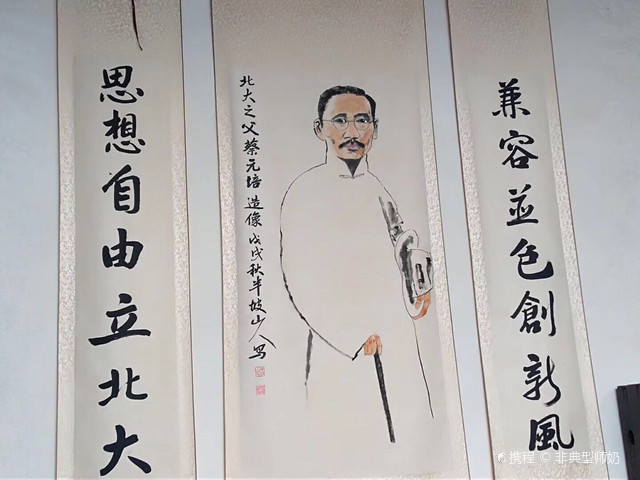 思想自由立北大
北大之父蔡元培 造像 戊戌秋半坡山人写
兼容並色創新風
携程 © 非典型师奶